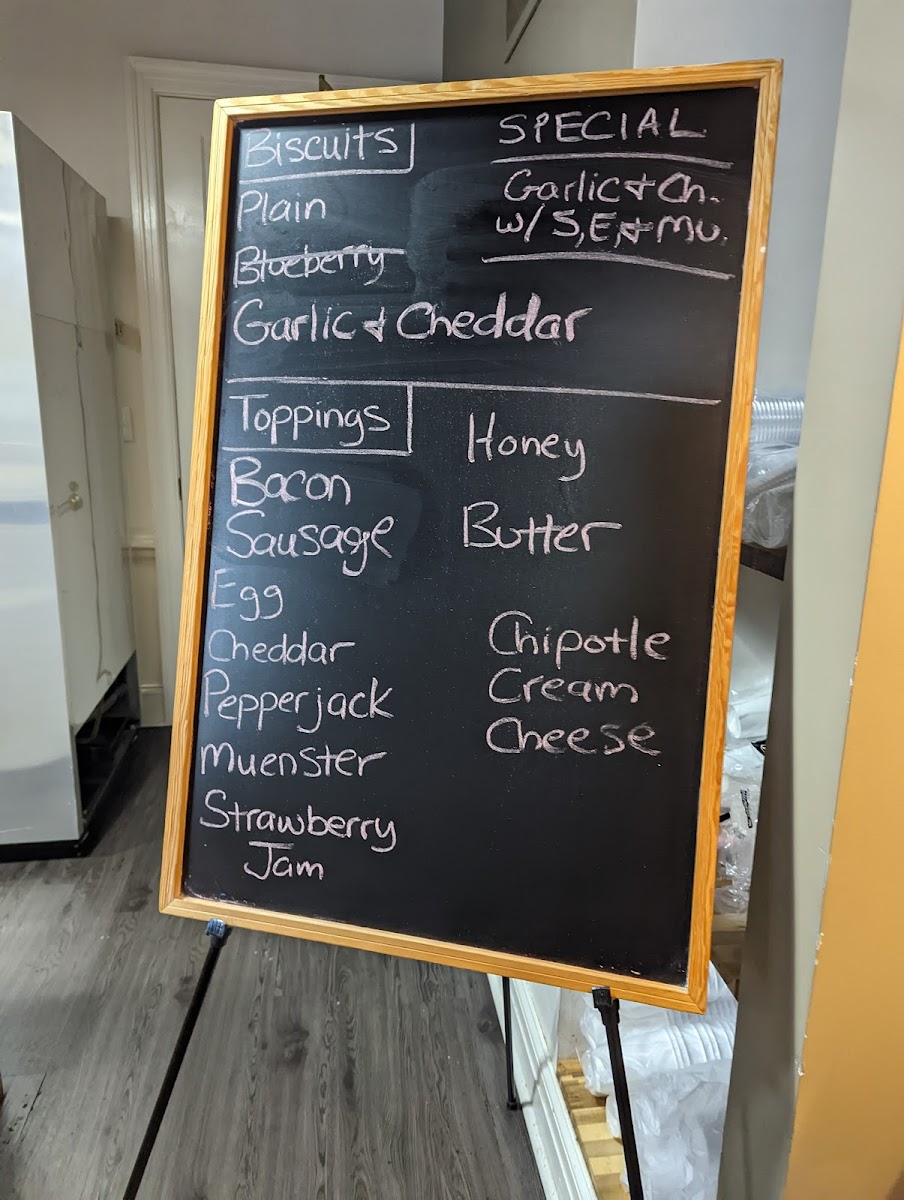 Biscuits
Plain
Blueberry
Garlic & Cheddar
SPECIAL
Garlic & Ch.
w/ S, E, & Mu.
Toppings
Bacon
Sausage
Egg
Cheddar
Pepperjack
Muenster
Strawberry
Jam
Honey
Butter
Chipotle
Cream
Cheese